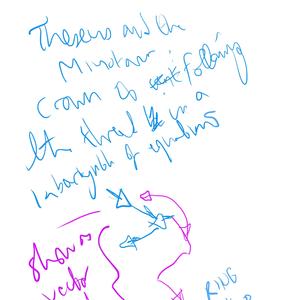 Theseus and the
Minotaur:
Crown of following
the thread in a
labarynth of equations
show as
vector
RING